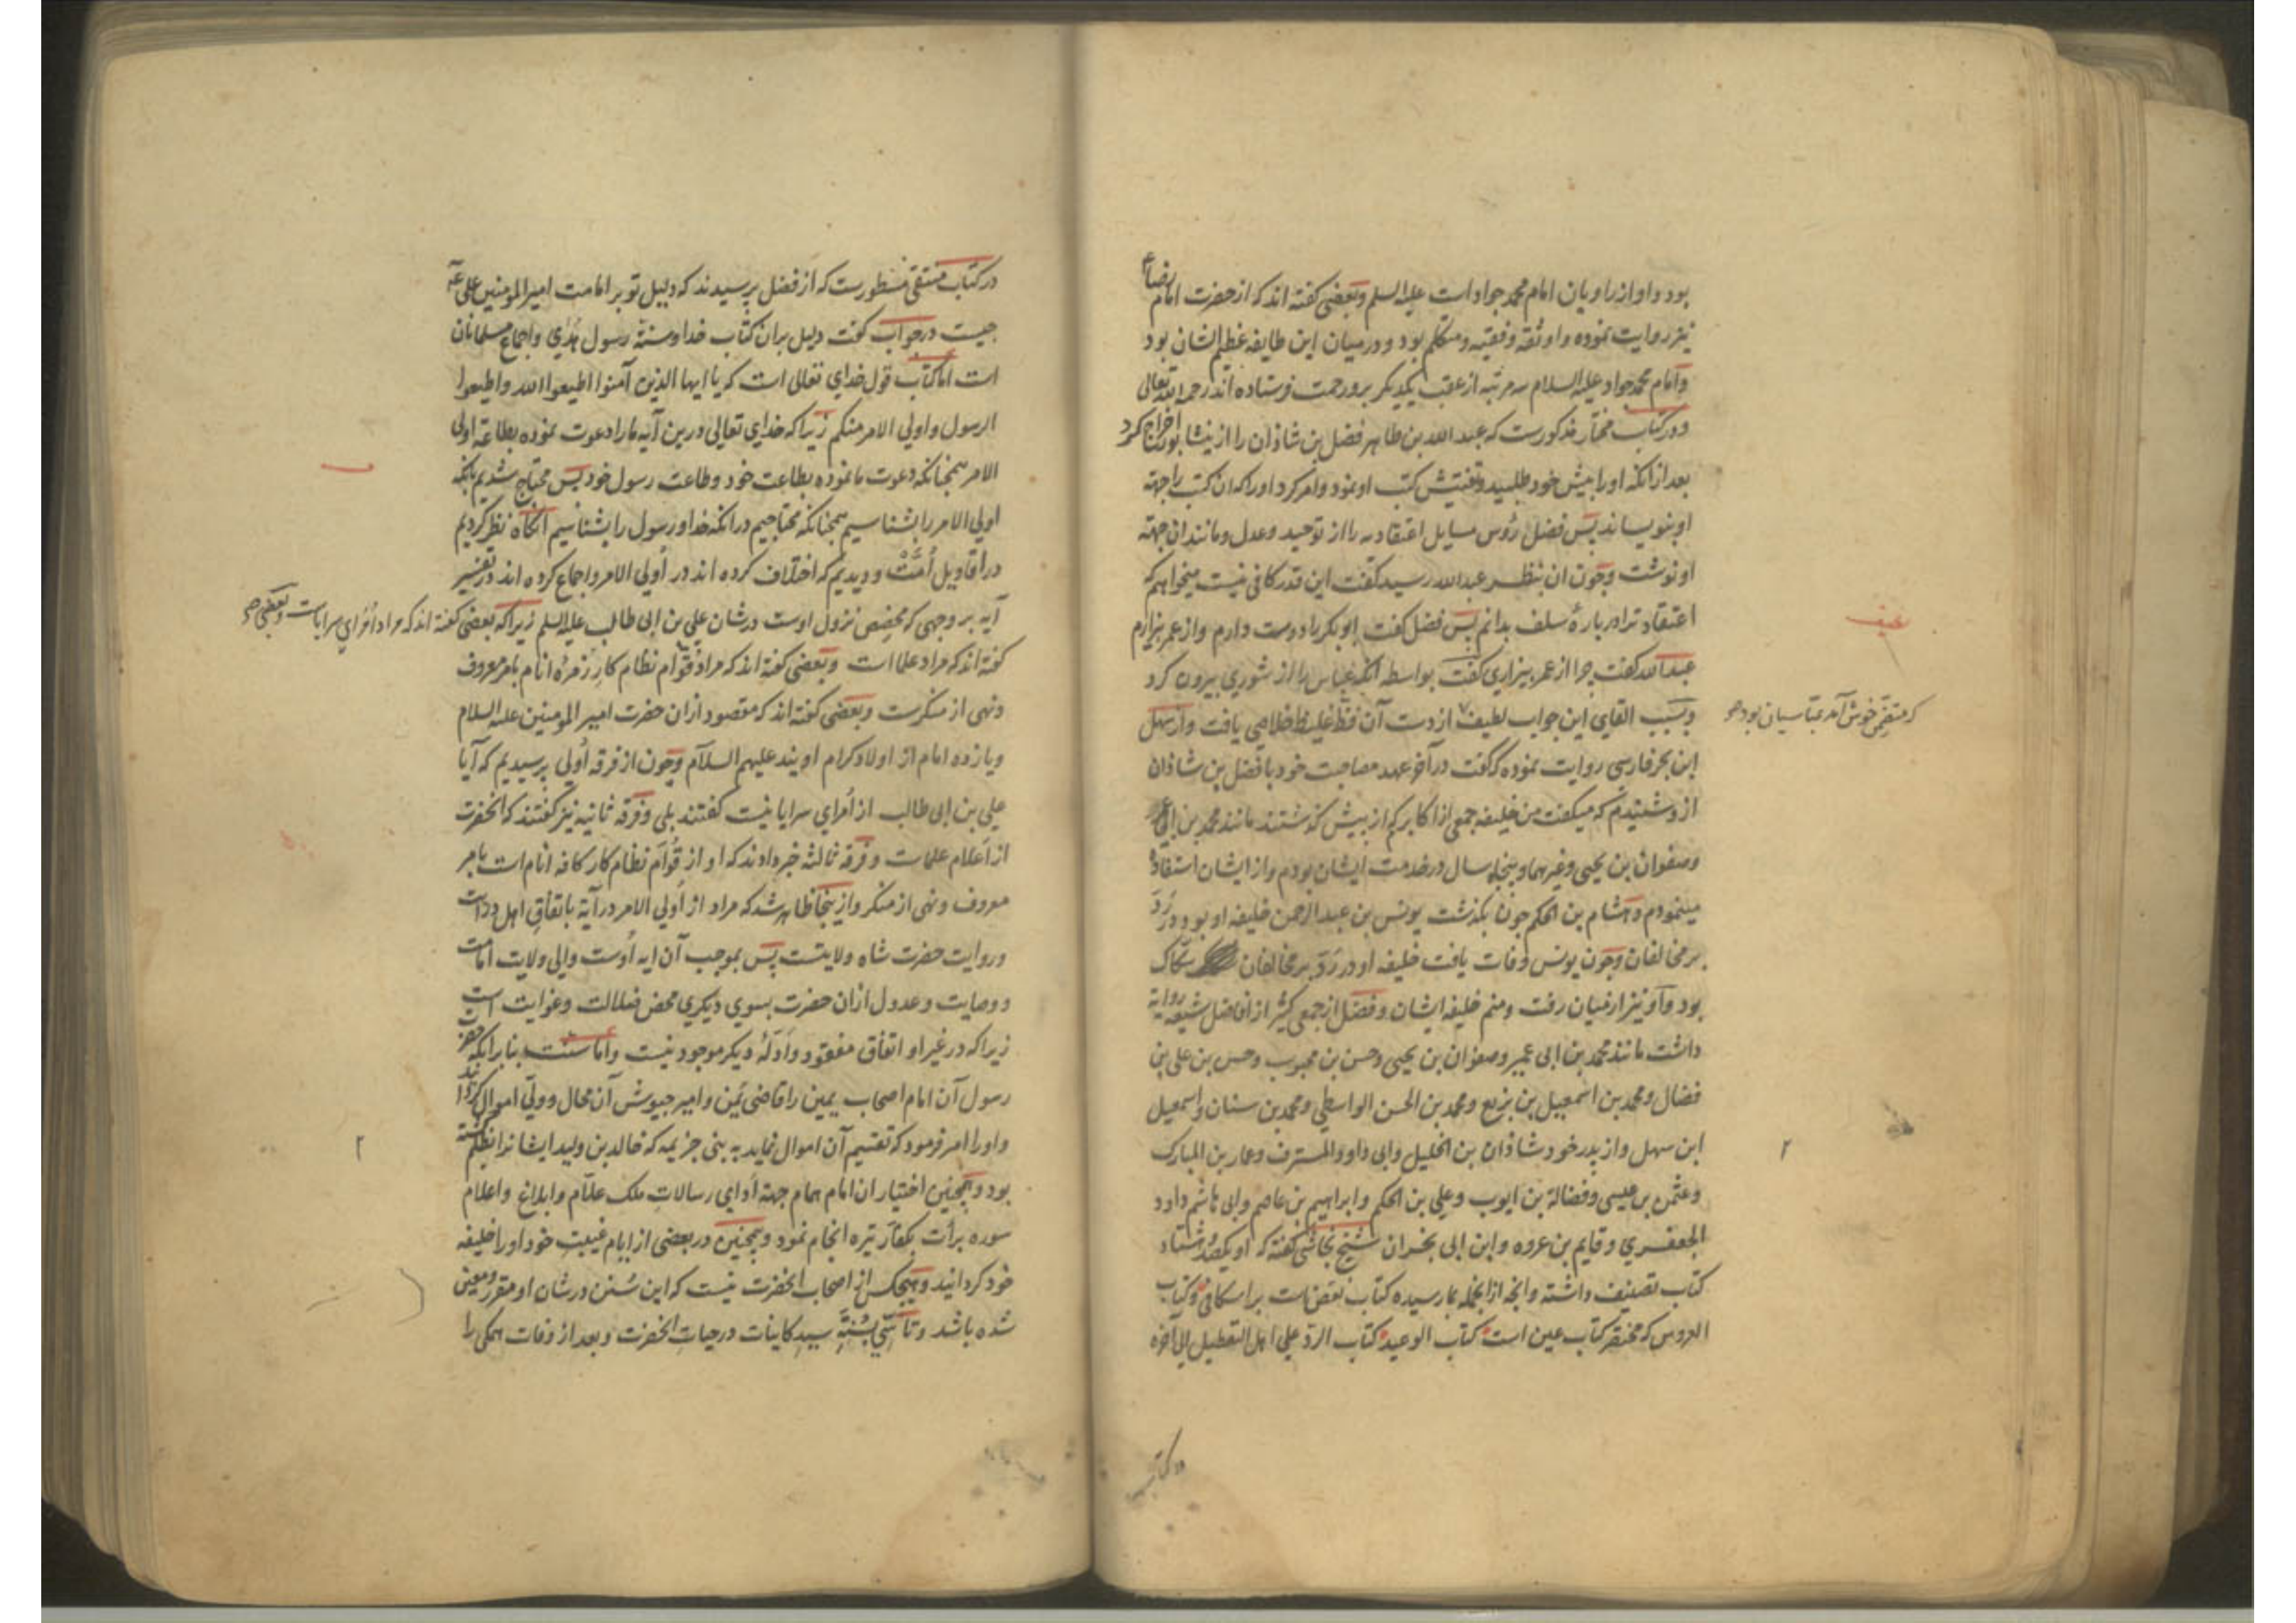 بود و او از راویان امام محمد جواد است علیه السلم و بعضی گفته اند که از حضرت امام رضا ع
نیز روایت نموده و او ثقه و فقیه و متکلم بود و در میان این طایفه عظیم الشان بود
و امام محمد جواد علیه السلام سه مرتبه از عقب یکدیگر برو رحمت فرستاده اند رحمه الله تعالی
و در کتاب مختار مذکورست که عبد الله بن طاهر فضل بن شاذان را از نیشابور اخراج کرد
بعد از انکه او را پیش خود طلبید و تفتیش کتب او نمود و امر کرد او را که ان کتب را جهة
او بنویساند پس فضل رؤس مسایل اعتقادیه را از توحید و عدل و مانند ان جهة
او نوشت و چون ان بنظر عبد الله رسید گفت این قدر کافی نیست میخواهم که
اعتقاد ترا در بارهٔ سلف بدانم پس فضل گفت ابو بکر را دوست دارم و از عمر بیزارم
عبد الله گفت چرا از عمر بیزاری گفت بواسطه انکه عباس را از شوری بیرون کرد
و بسبب القای این جواب لطیف از دست آن فظ غلیظ خلاصی یافت و از سهل
که متضمن خوش آمد عباسیان بود
ابن بحر فارسی روایت نموده که گفت در آخر عهد مصاحبت خود با فضل بن شاذان
ازو شنیدم که میگفت من خلیفه جمعی از اکابرم که از پیش گذشتند مانند محمد بن ابی عمیر
و صفوان بن یحیی و غیرهما و پنجاه سال در خدمت ایشان بودم و از ایشان استفاده
مینمودم و هشام بن الحکم چون بگذشت یونس بن عبد الرحمن خلیفه او بود در رد
بر مخالفان و چون یونس وفات یافت خلیفه او در رد بر مخالفان سکاک
بود و او نیز از میان رفت و منم خلیفه ایشان و فضل از جمعی کثیر از افاضل شیعه روایة
داشت مانند محمد بن ابی عمیر و صفوان بن یحیی و حسن بن محبوب و حسن بن علی بن
فضال و محمد بن اسمعیل بن بزیع و محمد بن الحسن الواسطی و محمد بن سنان و اسمعیل
ابن سهل و از پدر خود شاذان بن الخلیل و ابی داود المسترق و عمار بن المبارک
و عثمن بن عیسی و فضالة بن ایوب و علی بن الحکم و ابراهیم بن عاصم و ابی هاشم داود
الجعفری و قایم بن عروه و ابن ابی نجران شیخ نجاشی گفته که او یکصد و هشتاد
کتاب تصنیف داشته و انچه از انجمله بما رسیده کتاب نقض است بر اسکافی و کتاب
العروس که مختصر کتاب عین است کتاب الوعید کتاب الرد علی اهل التعطیل الی آخره
در کتاب
در کتاب منتقی مسطورست که از فضل پرسیدند که دلیل تو بر امامت امیر المومنین علی
چیست در جواب گفت دلیل بران کتاب خدا و سنة رسول هدی و اجماع مسلمانان
است اما کتاب قول خدای تعالی است که یا ایها الذین آمنوا اطیعوا الله و اطیعوا
الرسول و اولی الامر منکم زیرا که خدای تعالی درین آیه ما را دعوت نموده بطاعة اولی
الامر همچنانکه دعوت ما نموده بطاعت خود و طاعت رسول خود پس محتاج شدیم بانکه
اولی الامر را بشناسیم همچنانکه محتاجیم در انکه خدا و رسول را بشناسیم انگاه نظر کردیم
در اقاویل أمت و دیدیم که اختلاف کرده اند در أولی الامر و اجماع کرده اند در تفسیر
آیه بر وجهی که مخصص نزول اوست در شان علی بن ابی طالب علیه السلم زیرا که بعضی گفته اند که مراد أمرای سرایاست و بعضی
گفته اند که مراد علما است و بعضی گفته اند که مراد قوام نظام کار زمرهٔ انام بامر معروف
و نهی از منکرست و بعضی گفته اند که مقصود ازان حضرت امیر المومنین علیه السلام
و یازده امام از اولاد کرام اویند علیهم السلام و چون از فرقه أولی پرسیدیم که آیا
علی بن ابی طالب از أمرای سرایا نیست گفتند بلی و فرقه ثانیه نیز گفتند که انحضرت
از اعلام علماست و فرقه ثالثه خبر دادند که او از قوام نظام کار کافه انام است بامر
معروف و نهی از منکر و ازینجا ظاهر شد که مراد از أولی الامر در آیة باتفاق اهل درایت
و روایت حضرت شاه ولایتست پس بموجب آن ایه اوست والی ولایت امامت
و وصایت و عدول ازان حضرت بسوی دیگری محض ضلالت و غوایت است
زیرا که در غیر او اتفاق مفقود و ادلهٔ دیگر موجود نیست و اما سنت بنا بر انکه حضرت
رسول آن امام اصحاب یمین را قاضی یمن و امیر جیوش آن محال و ولی اموال گردانید
و او را امر فرمود که تقسیم آن اموال نماید به بنی جزیمه که خالد بن ولید ایشانرا بظلم کشته
بود و همچنین اختیار ان امام همام جهة ادای رسالات ملک علام و ابلاغ و اعلام
سوره برأت بکفار تیره انجام نمود و همچنین در بعضی از ایام غیبت خود او را خلیفه
خود گردانید و هیچکس از اصحاب انحضرت نیست که این سنن در شان او مقرر و معین
شده باشد و تاسی بسنة سید کاینات در حیات انحضرت و بعد از وفات همگی را